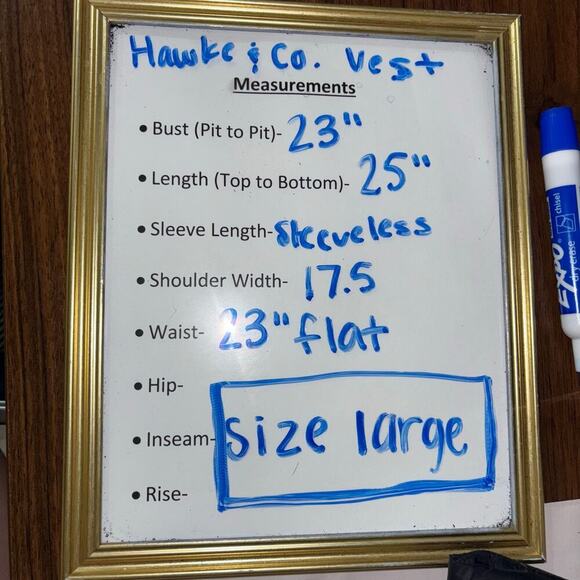 Hawke & Co. Vest
Measurements
• Bust (Pit to Pit)- 23"
• Length (Top to Bottom)- 25"
• Sleeve Length- Sleeveless
• Shoulder Width- 17.5
• Waist- 23" flat
• Hip-
• Inseam-
size large
• Rise-
EXPO
dry erase
chisel